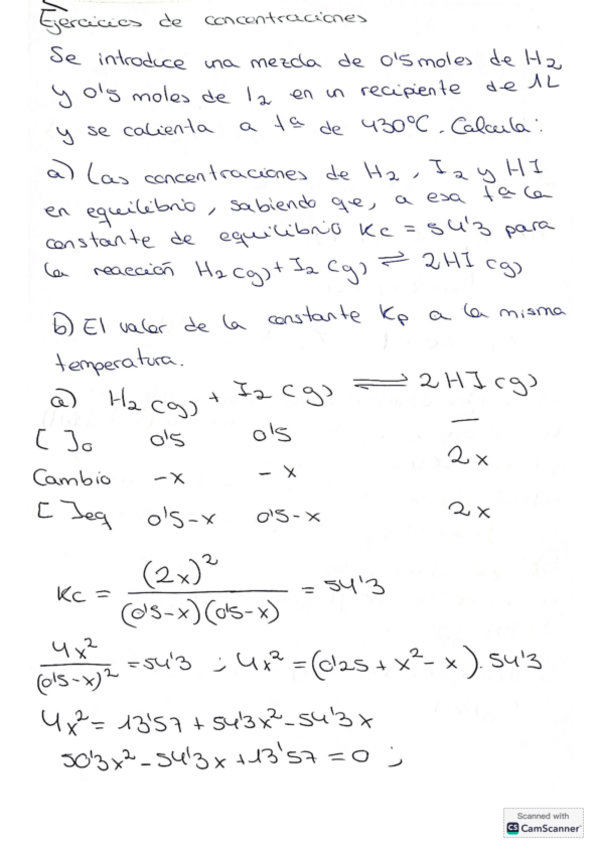 Ejercicios de concentraciones
Se introduce una mezcla de 0'5 moles de H2
y 0'5 moles de I2 en un recipiente de 1L
y se calienta a tª de 430ºC. Calcula:
a) Las concentraciones de H2, I2 y HI
en equilibrio, sabiendo que, a esa tª la
constante de equilibrio Kc = 54'3 para
la reacción H2(g) + I2(g) ⇌ 2HI(g)
b) El valor de la constante Kp a la misma
temperatura.
a) H2(g) + I2(g) ⇌ 2HI(g)
[ ]o 0'5 0'5 —
Cambio -x -x 2x
[ ]eq 0'5-x 0'5-x 2x
Kc = (2x)² / (0'5-x)(0'5-x) = 54'3
4x² / (0'5-x)² = 54'3 ; 4x² = (0'25 + x² - x). 54'3
4x² = 13'57 + 54'3x² - 54'3x
50'3x² - 54'3x + 13'57 = 0 ;
Scanned with
CS CamScanner